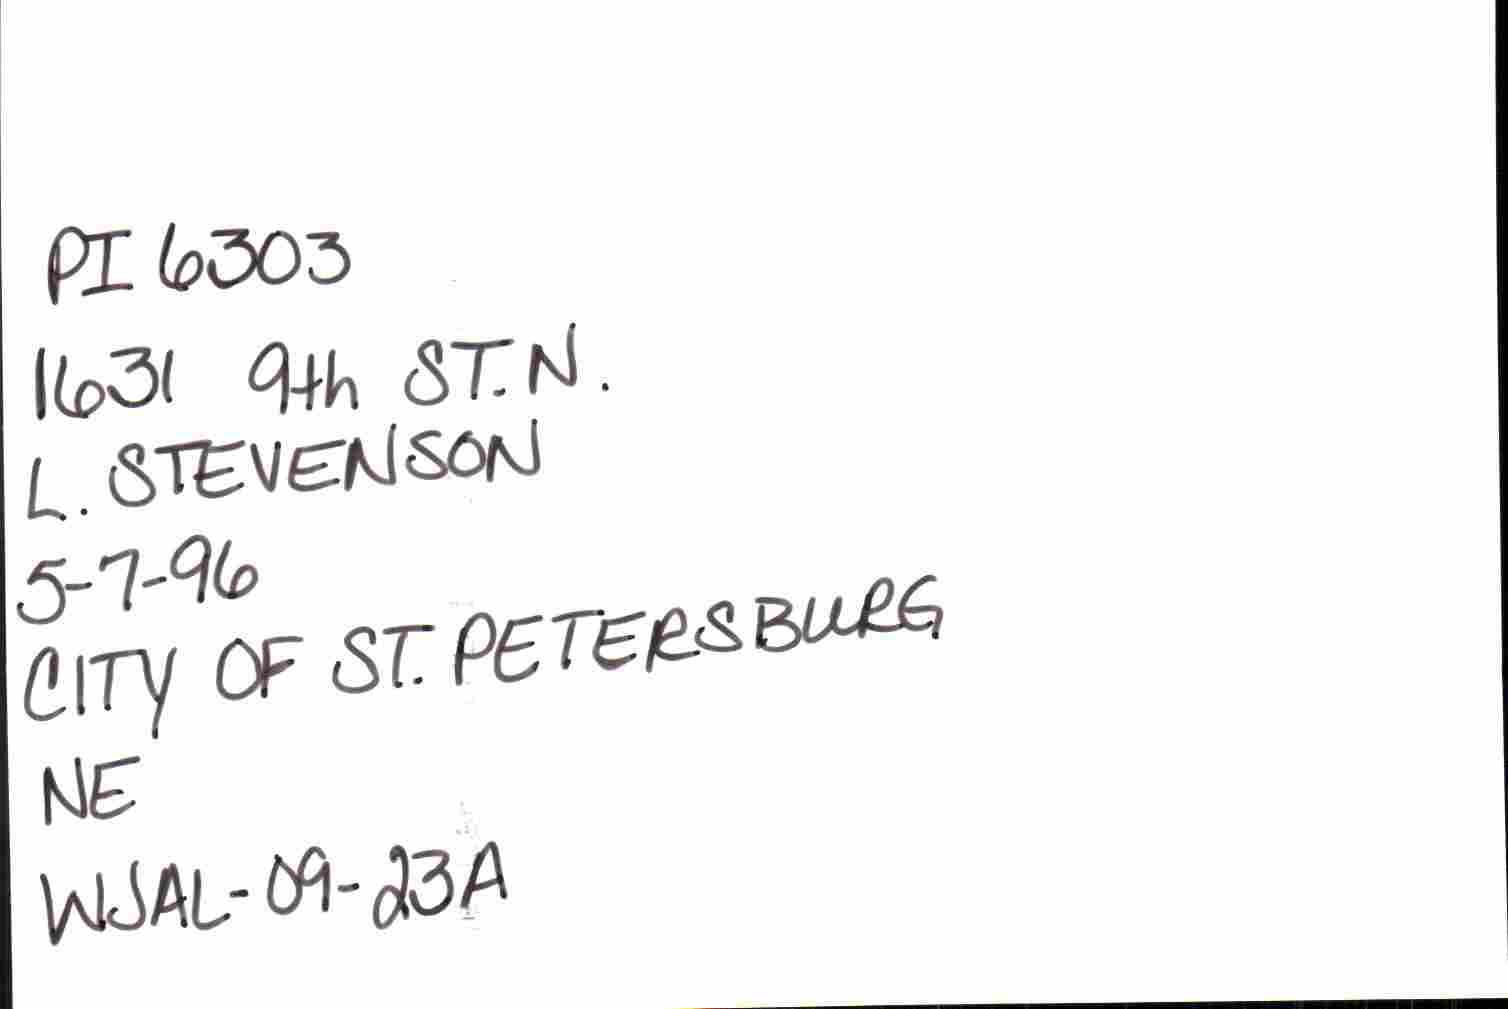 PI 6303
1631 9th ST. N.
L. STEVENSON
5-7-96
CITY OF ST. PETERSBURG
NE
WJAL-09-23A